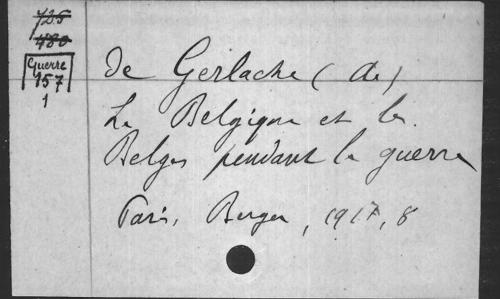 725
480
Guerre
157
1
de Gerlache (de)
La Belgique et les
Belges pendant la guerre
Paris, Berger, 1917, 8